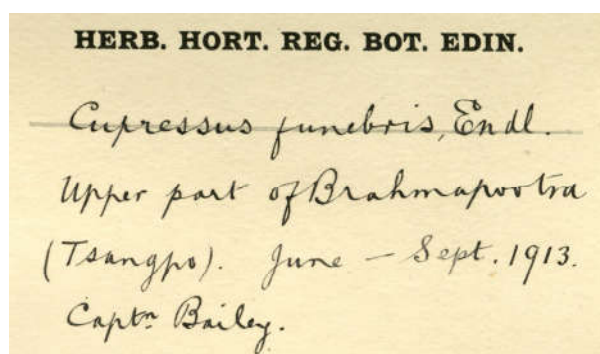 HERB. HORT. REG. BOT. EDIN.
Cupressus funebris, Endl.
Upper part of Brahmapootra
(Tsangpo). June — Sept. 1913.
Captn Bailey.